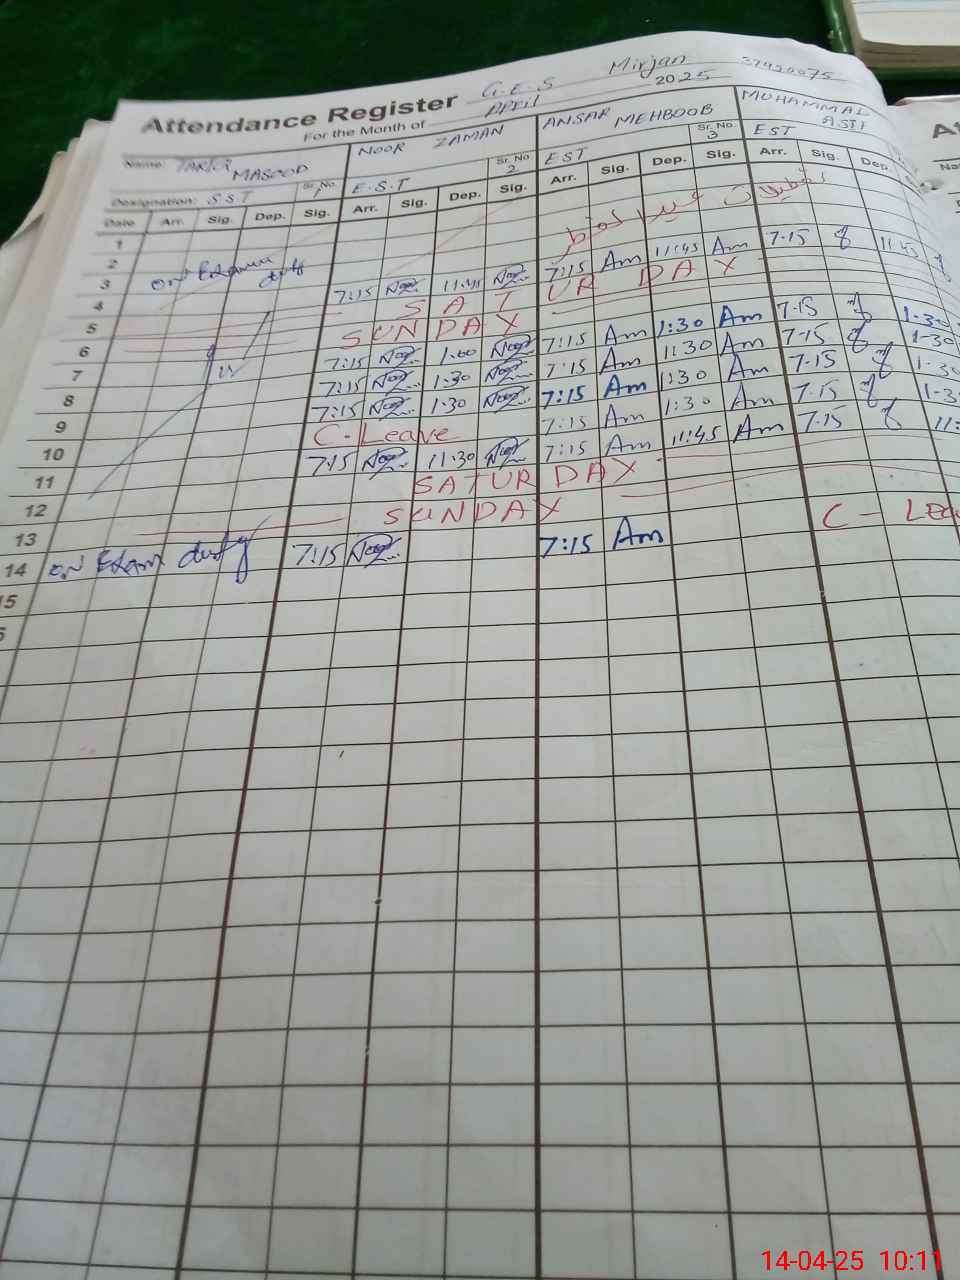 G.E.S Mirjan 37420075
Attendance Register
For the Month of April 2025
Name: TARIQ MASOOD NOOR ZAMAN ANSAR MEHBOOB MUHAMMAD ASIF
Designation: SST Sr. No. 1 E.S.T Sr. No. 2 EST Sr. No. 3 EST
Date Arr. Sig. Dep. Sig. Arr. Sig. Dep. Sig. Arr. Sig. Dep. Sig. Arr. Sig. Dep.
1
2 تعطیلات عید الفطر
3 on duty
4 7:15 11:45 7:15 Am 11:45 Am 7-15 11:45
5 SATUR DAY
6 SUNDAY
7 7:15 1:00 7:15 Am 1:30 Am 7-15 1-30
8 7:15 1:30 7:15 Am 1:30 Am 7-15 1-30
9 7:15 1:30 7:15 Am 1:30 Am 7-15 1-30
10 C-Leave 7:15 Am 1:30 Am 7-15 1-3
11 7:15 11:30 7:15 Am 11:45 Am 7-15 11:
12 SATUR DAY
13 SUNDAY C-
14 on Exam duty 7:15 7:15 Am
14-04-25 10:11